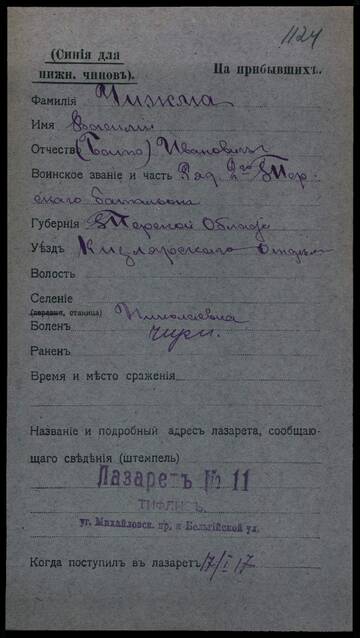 1124
(Синія для
нижн. чиновъ).
На прибывшихъ.
Фамилія Чижма
Имя Василій
Отчество (Батьк.) Ивановичъ
Воинское званіе и часть Ряд. 2го Тер-
скаго баталіона
Губернія Терской Области
Уѣздъ Кизлярскаго Отдѣл.
Волость
Селеніе
(деревня, станица) Николаевка
Боленъ чири.
Раненъ
Время и мѣсто сраженія
Названіе и подробный адресъ лазарета, сообщаю-
щаго свѣдѣнія (штемпель)
Лазаретъ № 11
ТИФЛИСЪ.
уг. Михайловск. пр. и Бельгійской ул.
Когда поступилъ въ лазаретъ 17/I 17